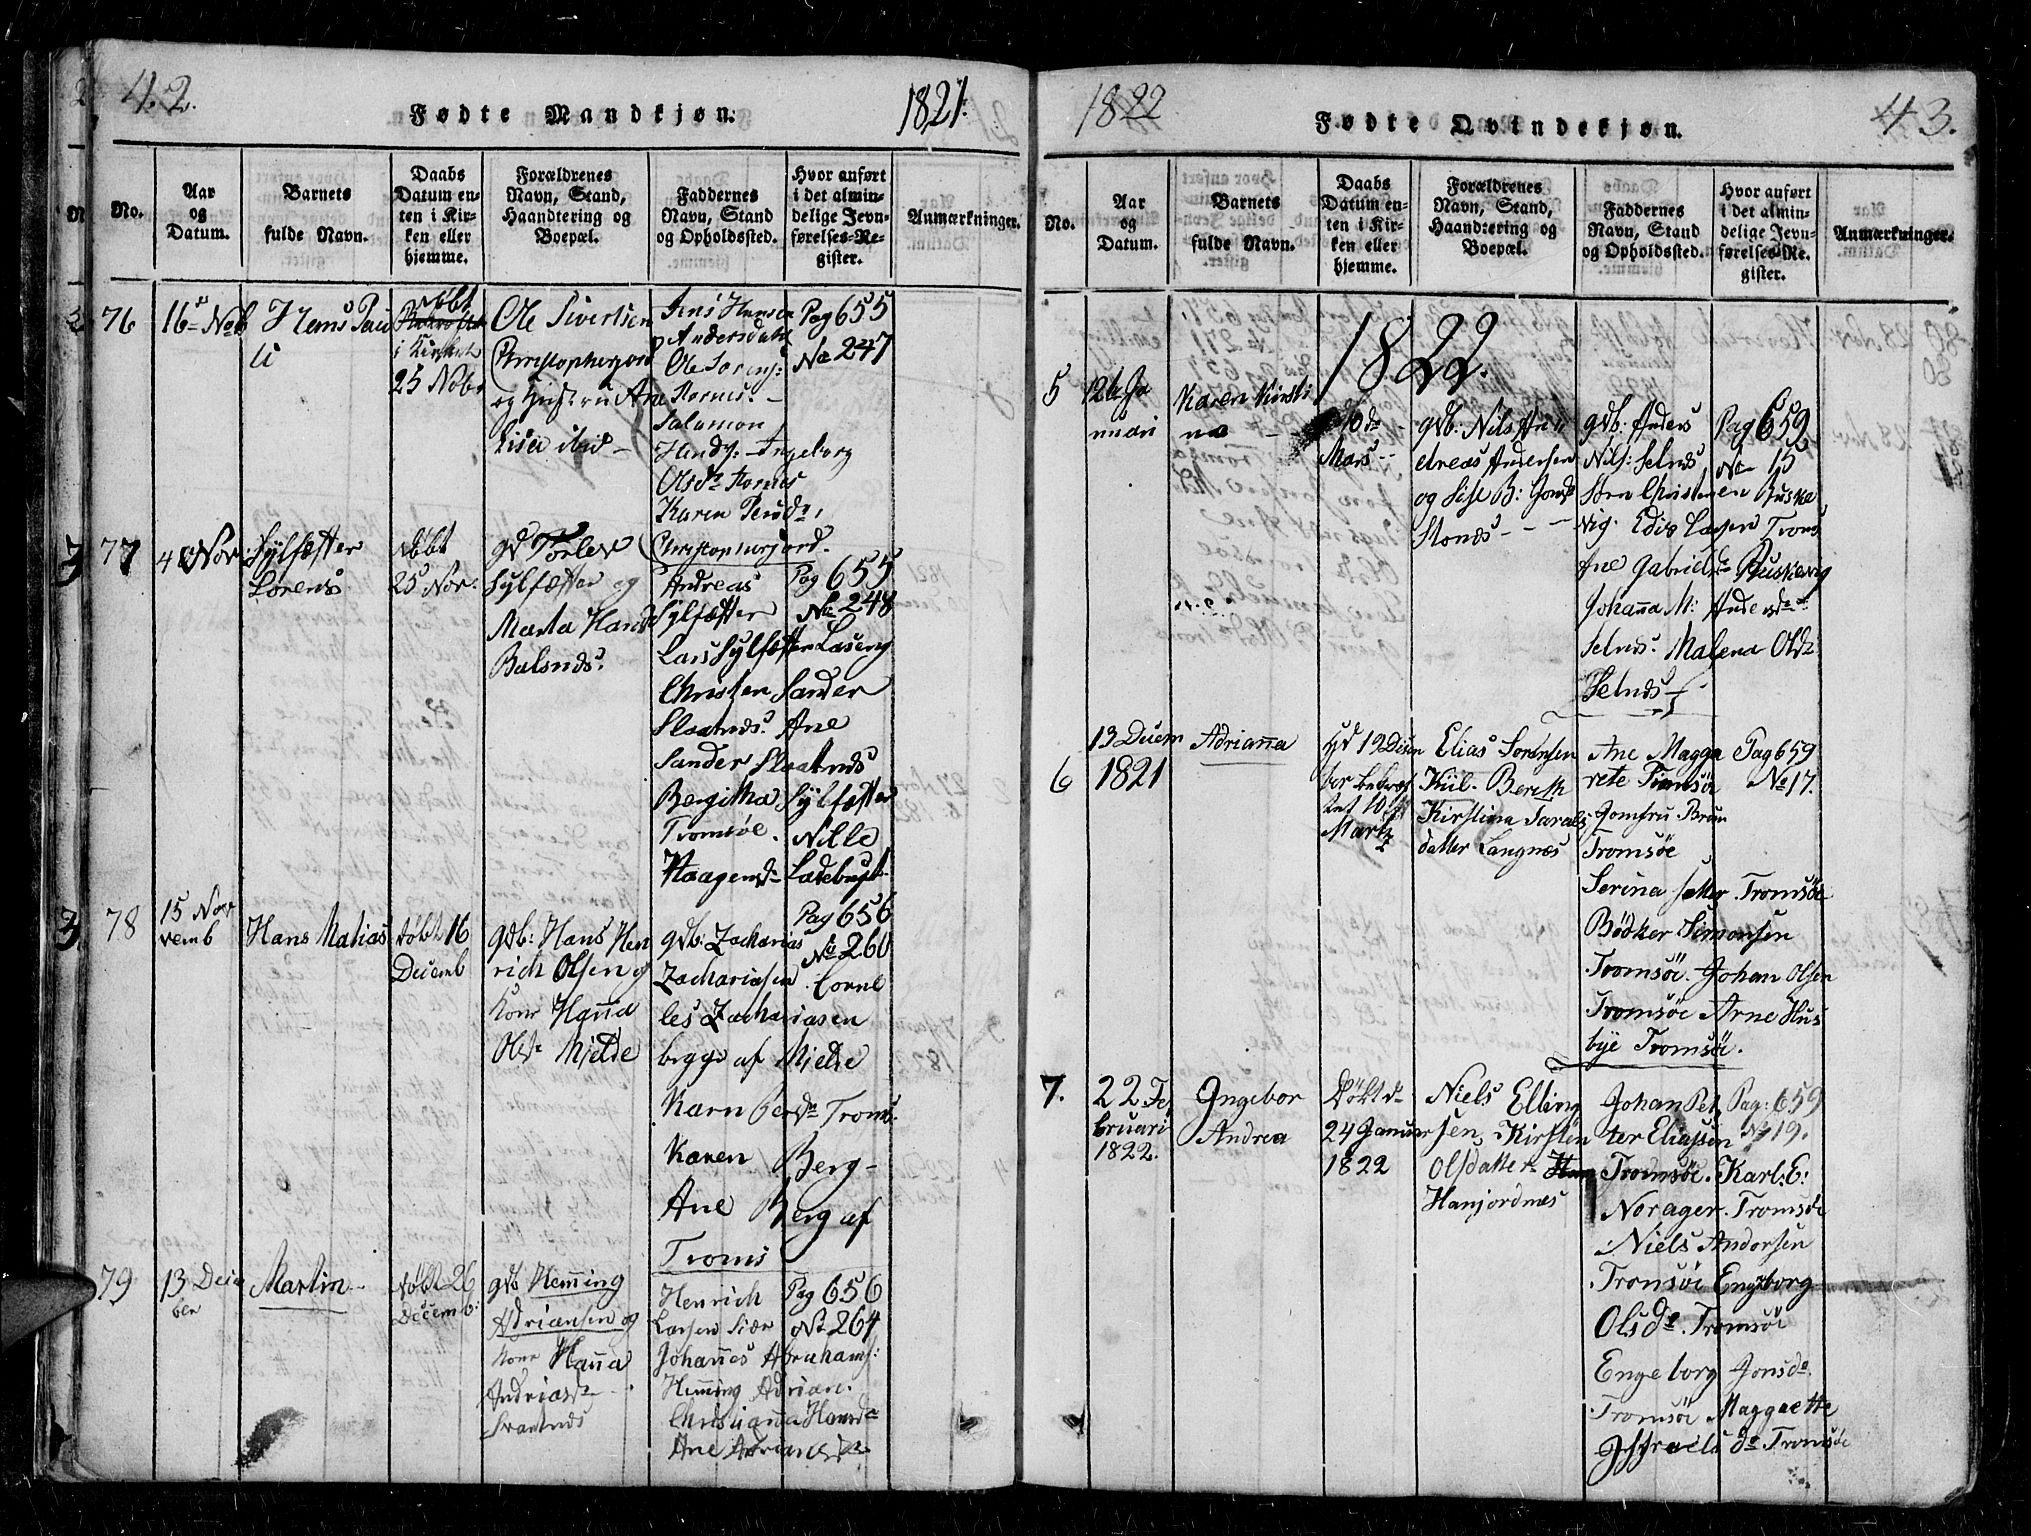 42.
Fødte Mandkjøn.
1821.
No.
Aar
og
Datum.
Barnets
fulde Navn.
Daabs
Datum en-
ten i Kir-
ken eller
hjemme.
Forældrenes
Navn, Stand,
Haandtering og
Boepæl.
Faddernes
Navn, Stand
og Opholdssted.
Hvor anført
i det almin-
delige Jevn-
førelses-Re-
gister.
Anmærkninger.
76
16 Novb
Hans Pau
li
døbt
i Kirken
25 Nobr
Ole Sivertsen
Christophergord
og Hustru Ane
Lisa ibid
Jens Hansen
Andersdahl
Ole Sorens:
Hornes. -
Salamon
Hends: Ingeborg
Olsdr Hornes
Karen Pensdr.
Christophergord.
Pag 655
No 247
77
4 Nov
Sylfæster
Lorens
døbt
25 Nov:
gd Torlev
Sylfæster og
Marta Hansd
Balsnds.
Andreas
Sylfæster
Lars Sylfæster Laseng
Christen Sander
Slaatnds. Ane
Sander Slaatnds
Bergitha Sylfæster
Tromsöe. Nille
Haagensdr Ladebugt
Pag 655
No 248
78
15 Nov
vemb
Hans Matias
døbt 16
Decemb
gdb: Hans Hen
rich Olsen og
Kone Hanna
Olsdr Mjelde
gdb: Zacharias
Zachariasen. Corne
les Zachariasen
begge af Mjelde
Karn Persdr Troms.
Karen Berg -
Ane Berg af
Troms
Pag 656
No 260
79
13 Decem
ber
Martin
døbt 26
Decemb:
gdb Hemming
Adriansen og
Kone Hanna
Andriasdr
Svartnds
Henrich
Larsen Siær
Johannes Abrahams:
Hemming Adrian.
Christianna Hansdr
Ane Adriansdr
Pag 656
No 264
1822
Fødte Qvindekjøn.
43.
No.
Aar
og
Datum.
Barnets
fulde Navn.
Daabs
Datum en-
ten i Kir-
ken eller
hjemme.
Forældrenes
Navn, Stand,
Haandtering og
Boepæl.
Faddernes
Navn, Stand
og Opholdssted.
Hvor anført
i det almin-
delige Jevn-
førelses-Re-
gister.
Anmærkninger.
1822.
5
12te Ja
nuari
Karen Kirsti
na
Mars
gdb: Nils An
dreas Andersen
og Sise B: Jonsdr
Stonds
gdb: Anders
Nils: Selnds
Sten Christensen Buske
vig. Edis Larsen Troms
Ane Gabrielsdr Buskevig
Johanna M: Andersdr
Selnds. Malena Olsdr
Selnds
Pag 659
No 15
6
13 Decem
1821
Adrianna
Hd 19 Disem
ber bekræf
tet 10
Martz
Elias Sorensen
Kiil. Berith
Kirstina Saras
datter Langnæs
Ane Magga
rete Tromsöe
Jomfru Brun
Tromsöe
Serina sætter Tromsöe
Bödker Simonsen
Tromsöe. Johan Olsen
Tromsöe Arne Hus
bye Tromsöe.
Pag 659
No 17.
7.
22 Fe
bruari
1822.
Ingebor
Andrea
Döbt d
24 Januar
1822
Niels Elling
sen, Kirsten
Olsdatter
Hanjordnæs
Johan Pet
ter Eliassen
Tromsöe. Karl: E:
Norager. Tromsöe
Niels Andorsen
Tromsöe Engeborg
Olsdr. Tromsöe
Engeborg Jonsdr.
Tromsöe Maggrette
Issraels dr Tromsöe
Pag: 659
No 19.